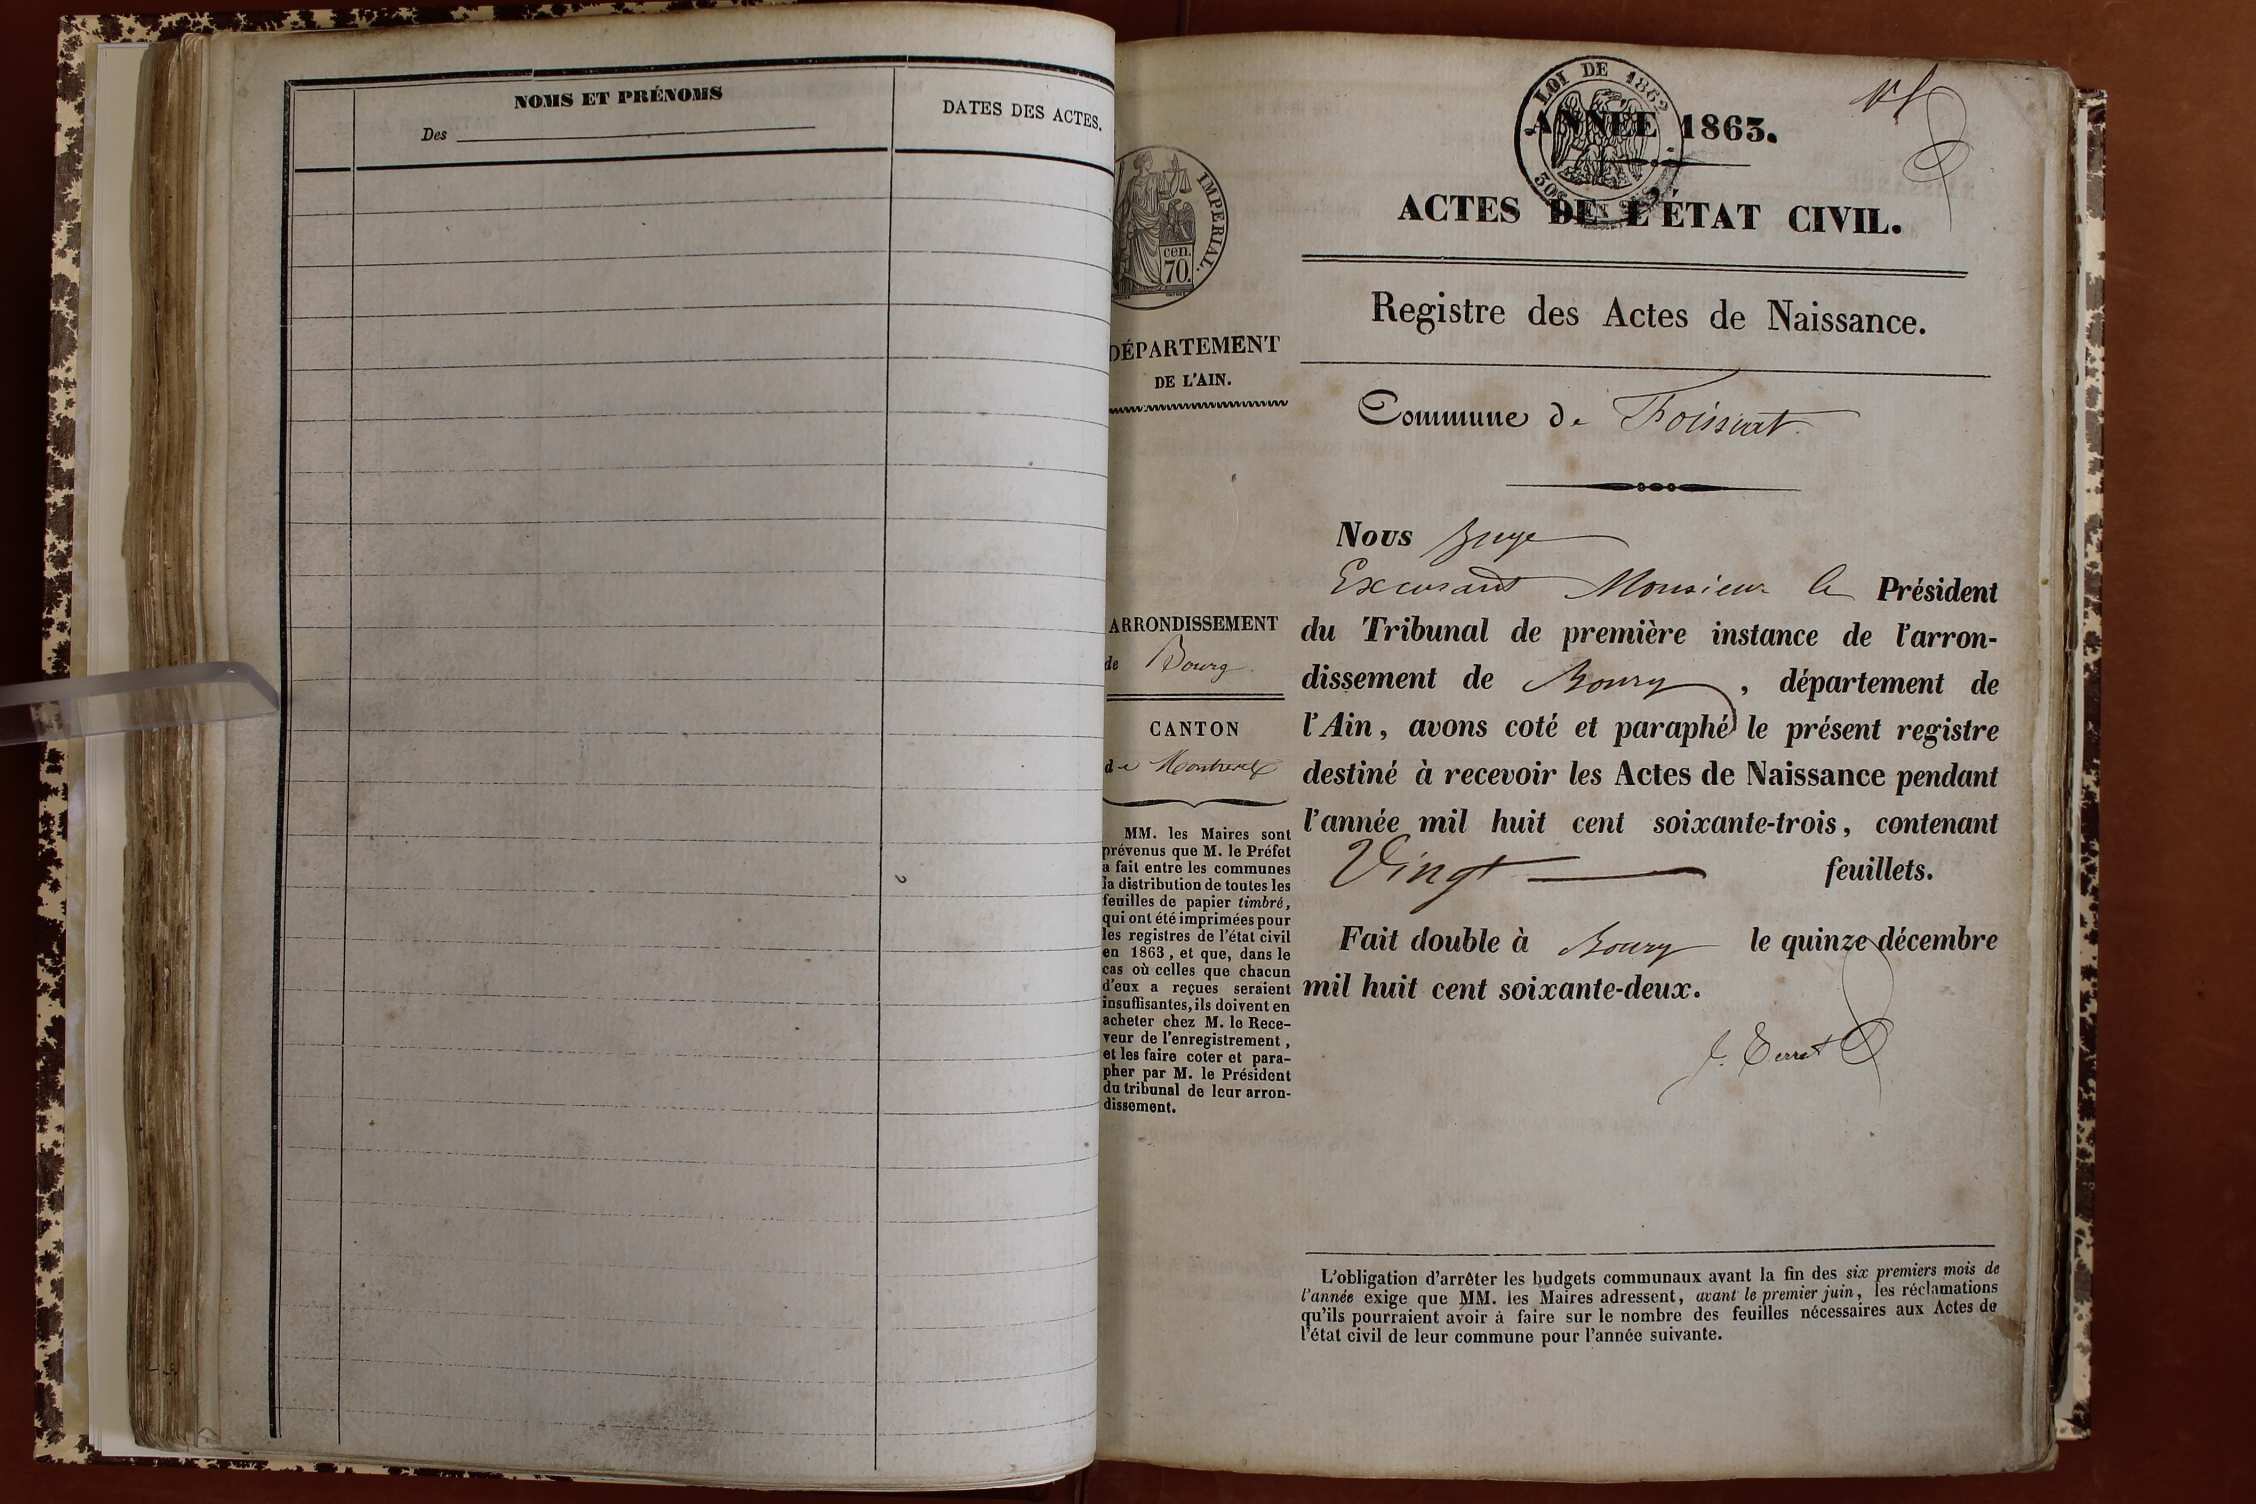 NOMS ET PRÉNOMS
Des
DATES DES ACTES.
LOI DE 1862
ANNÉE 1863.
ACTES DE L'ÉTAT CIVIL.
Registre des Actes de Naissance.
Commune de Foissiat.
IMPERIAL.
cen.
70.
DÉPARTEMENT
DE L'AIN.
ARRONDISSEMENT
de Bourg
CANTON
de Montrevel
MM. les Maires sont
prévenus que M. le Préfet
a fait entre les communes
la distribution de toutes les
feuilles de papier timbré,
qui ont été imprimées pour
les registres de l'état civil
en 1863, et que, dans le
cas où celles que chacun
d'eux a reçues seraient
insuffisantes, ils doivent en
acheter chez M. le Rece-
veur de l'enregistrement,
et les faire coter et para-
pher par M. le Président
du tribunal de leur arron-
dissement.
Nous Juge
Excusant Monsieur le Président
du Tribunal de première instance de l'arron-
dissement de Bourg, département de
l'Ain, avons coté et paraphé le présent registre
destiné à recevoir les Actes de Naissance pendant
l'année mil huit cent soixante-trois, contenant
Vingt feuillets.
Fait double à Bourg le quinze décembre
mil huit cent soixante-deux.
L'obligation d'arrêter les budgets communaux avant la fin des six premiers mois de
l'année exige que MM. les Maires adressent, avant le premier juin, les réclamations
qu'ils pourraient avoir à faire sur le nombre des feuilles nécessaires aux Actes de
l'état civil de leur commune pour l'année suivante.